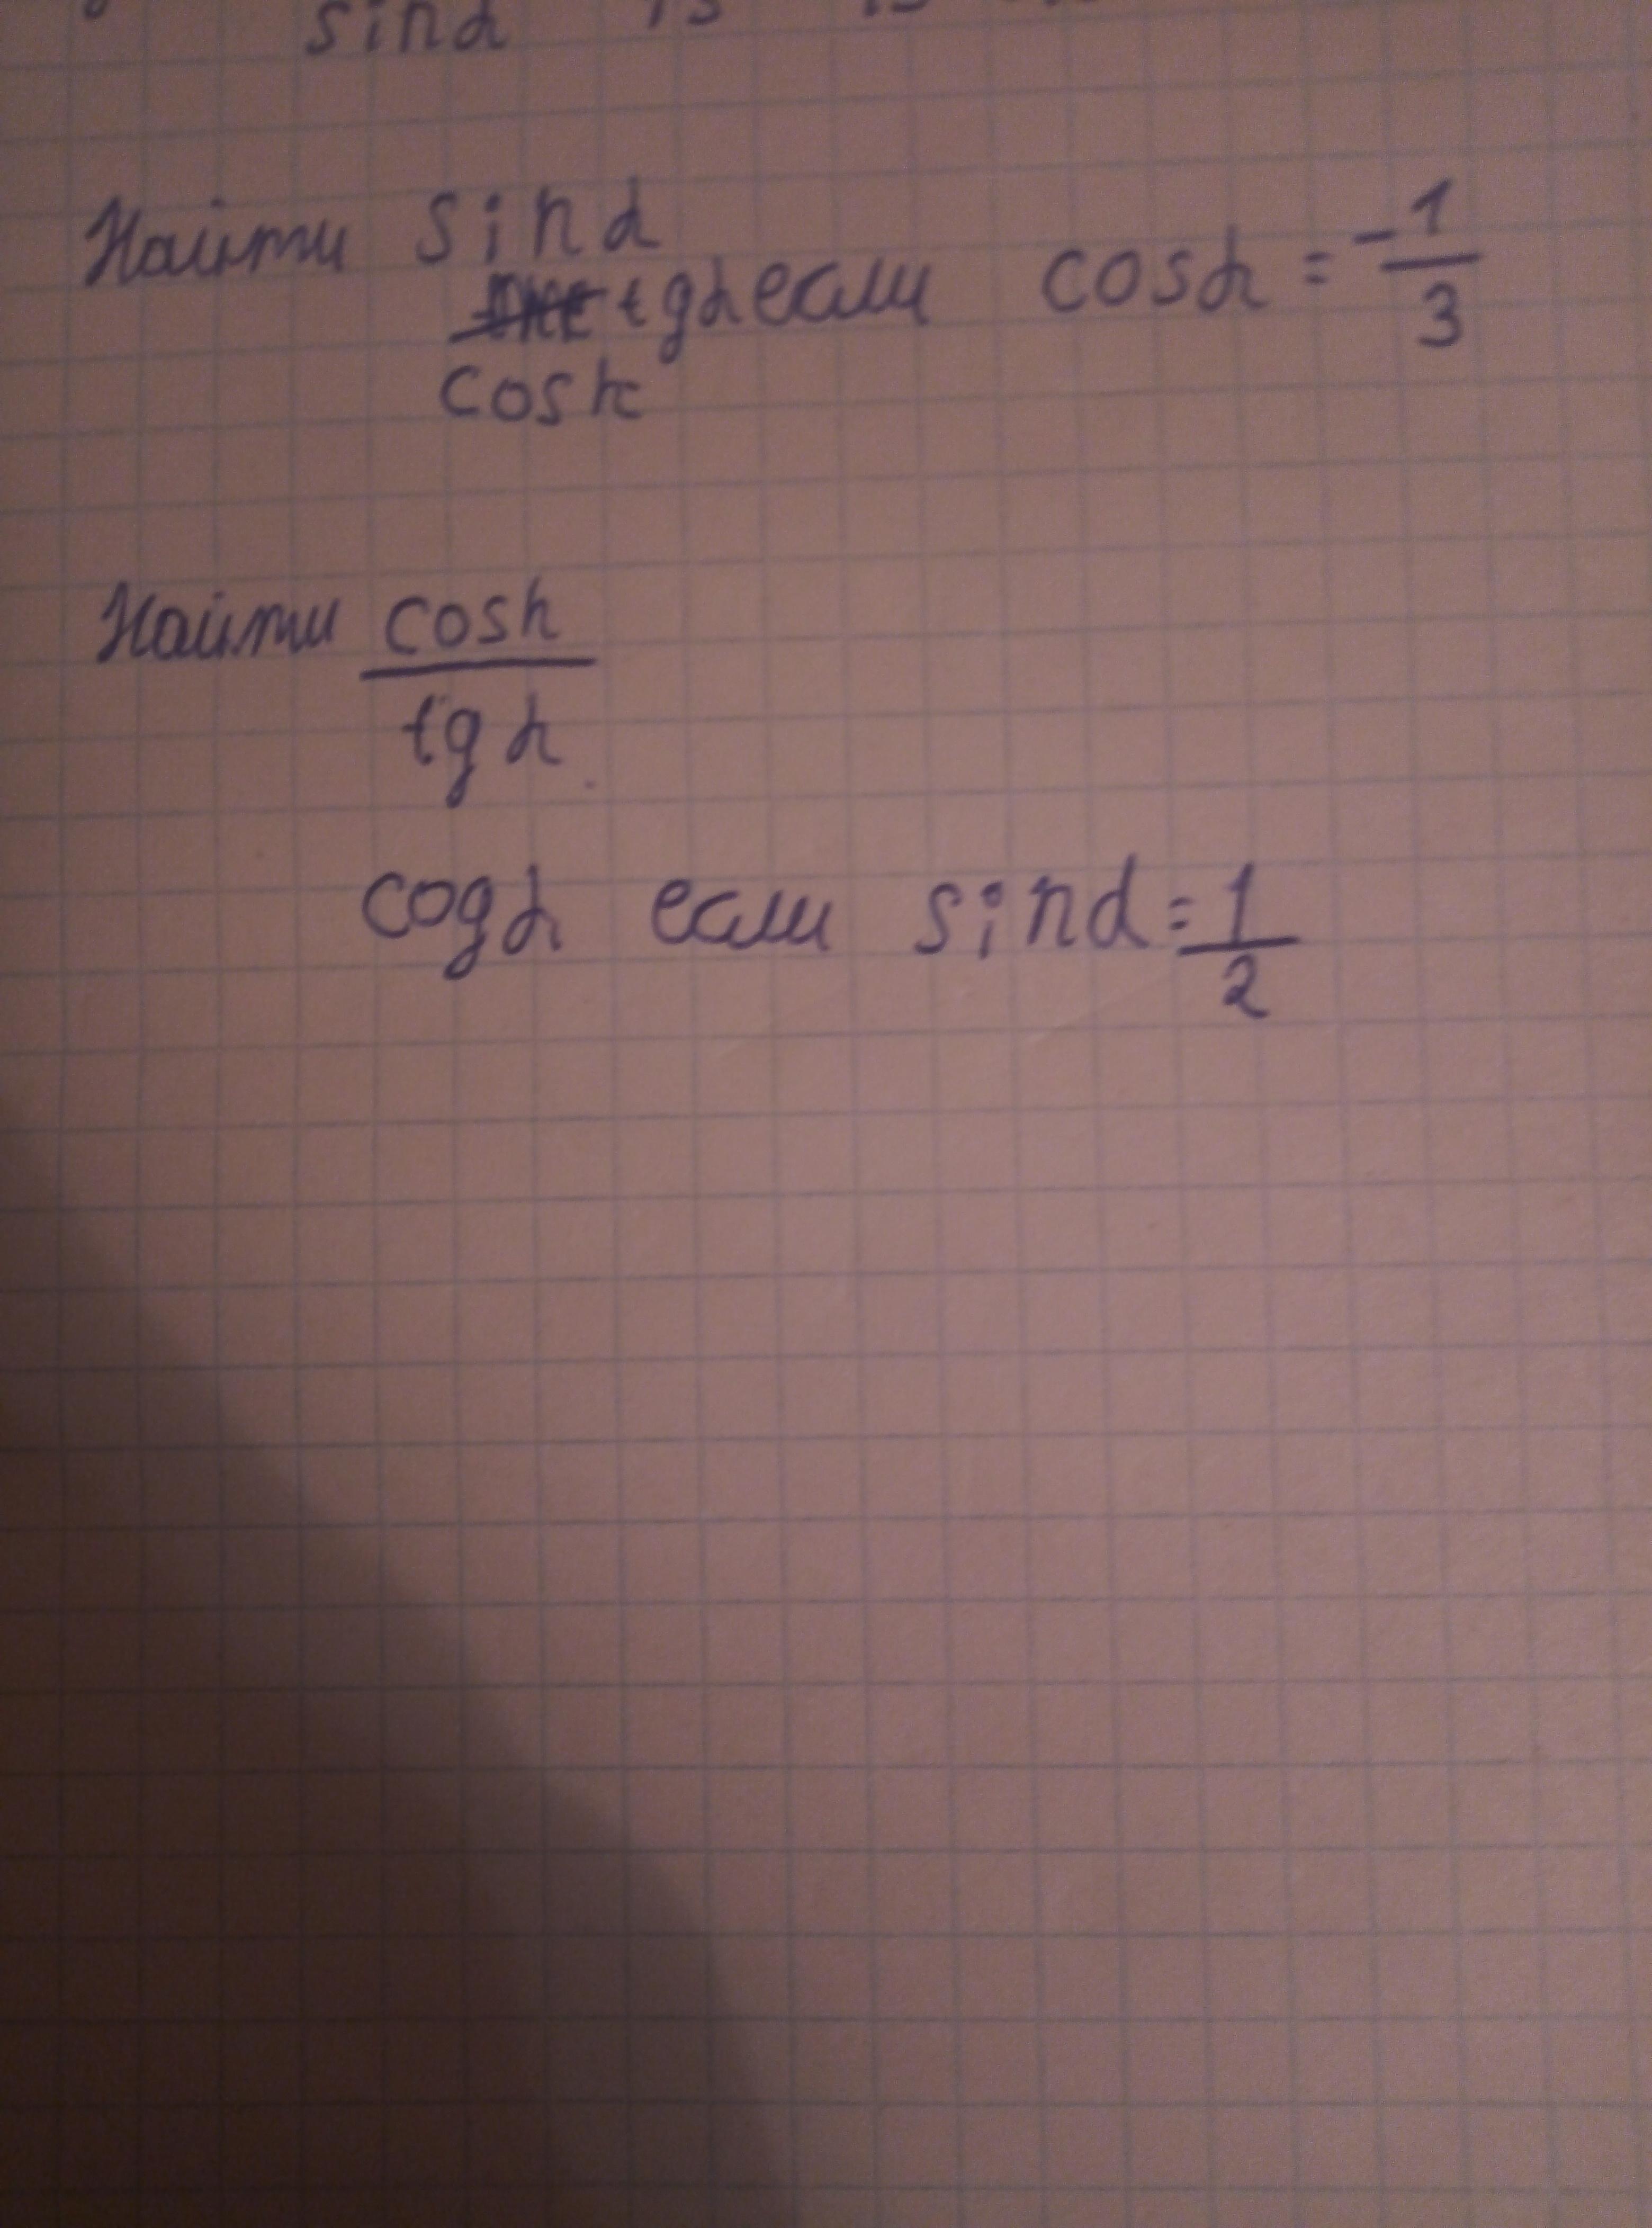 sin α
Найти sin α
tg α если cos α = -1/3
cos α
Найти cos α
tg α
cog α если sin α = 1/2